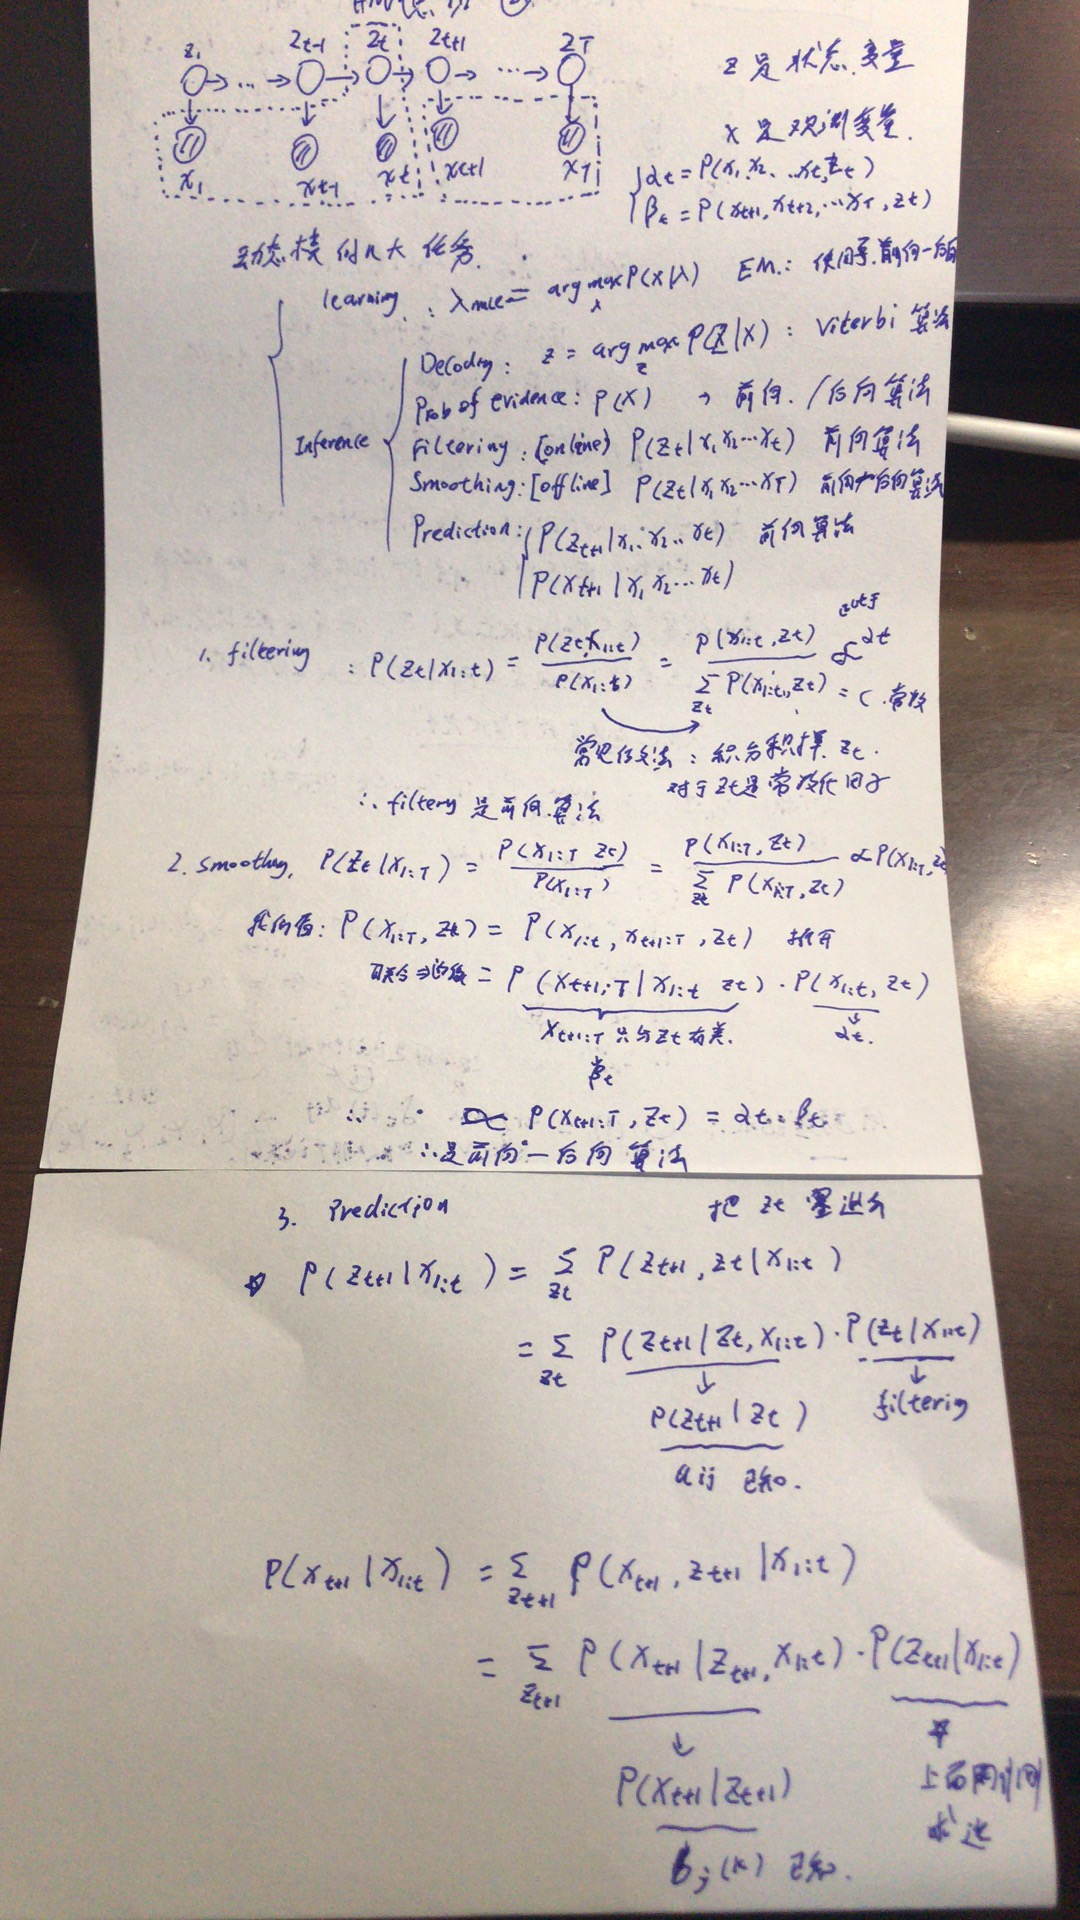 z₁ Zt-1 Zt Zt+1 ZT
x₁ xt-1 xt xt+1 xT
Z 是 状态 变量
X 是 观测变量.
αt = P(x₁ x₂ … xt, Zt)
βt = P(xt+1, xt+2, … xT, Zt)
动态模 的 大 任务.
learning : λmle = arg max_λ P(X|λ) EM: 前向-后向
Inference
Decoding: z = arg max_z P(Z|X) : viterbi 算法
Prob of evidence: P(X) → 前向 / 后向算法
Filtering : [online) P(Zt|x₁ x₂ … xt) 前向算法
Smoothing: [offline] P(Zt|x₁ x₂ … xT) 前向 后向算法
Prediction: P(Zt+1|x₁ x₂ .. xt) 前向算法
P(xt+1|x₁ x₂ … xt)
1. filtering : P(Zt|x1:t) = P(Zt, x1:t) / P(x1:t) = P(x1:t, Zt) / Σ_Zt P(x1:t, Zt) = C 常数 ∝ αt
常见 法 : 积分积掉 Zt.
对于 Zt是 常数化 因子
∴ filtery 是 前向 算法
2. smoothing, P(Zt|x1:T) = P(x1:T Zt) / P(x1:T) = P(x1:T, Zt) / Σ_Zt P(x1:T, Zt) ∝ P(x1:T, Z
: P(x1:T, Zt) = P(x1:t, xt+1:T, Zt)
= P(xt+1:T|x1:t Zt) · P(x1:t, Zt)
xt+1:T 只与 Zt 有关. αt.
βt
∴ ∝ P(xt+1:T, Zt) = αt · βt
∴ 是 前向-后向 算法
3. Prediction 把 Zt 塞进去
☆ P(Zt+1|x1:t) = Σ_Zt P(Zt+1, Zt|x1:t)
= Σ_Zt P(Zt+1|Zt, x1:t) · P(Zt|x1:t)
↓ ↓
P(Zt+1|Zt) filterig
aij 已知.
P(xt+1|x1:t) = Σ_Zt+1 P(xt+1, Zt+1|x1:t)
= Σ_Zt+1 P(xt+1|Zt+1, x1:t) · P(Zt+1|x1:t)
↓ ☆
P(xt+1|Zt+1) 上面
bj(k) 已知. 求过